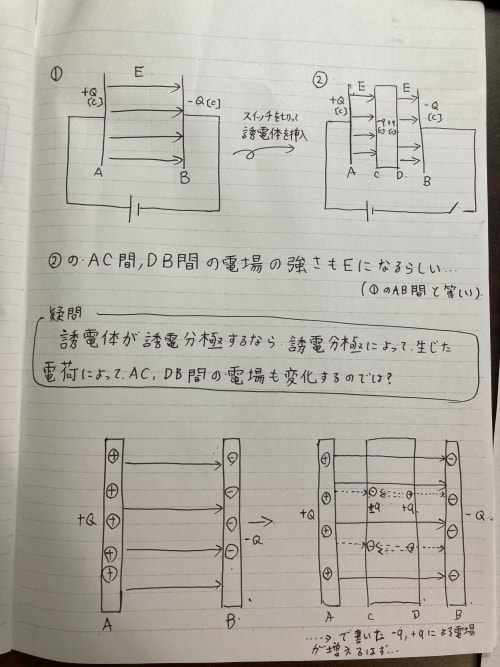 ①
E
+Q
[C]
-Q[C]
A
B
スイッチを切って
誘電体を挿入
②
E
E
+Q
[C]
-q
+q
-Q
[C]
A
C
D
B
②の AC間, DB間の電場の強さもEになるらしい…
(①のAB間と等しい).
疑問
誘電体が誘電分極するなら、誘電分極によって、生じた
電荷によって、AC, DB間の電場も変化するのでは?
+Q
-Q
A
B
+Q
-q
+q
-Q
A
C
D
B
……> で書いた -q, +q による電場
が増えるはず…